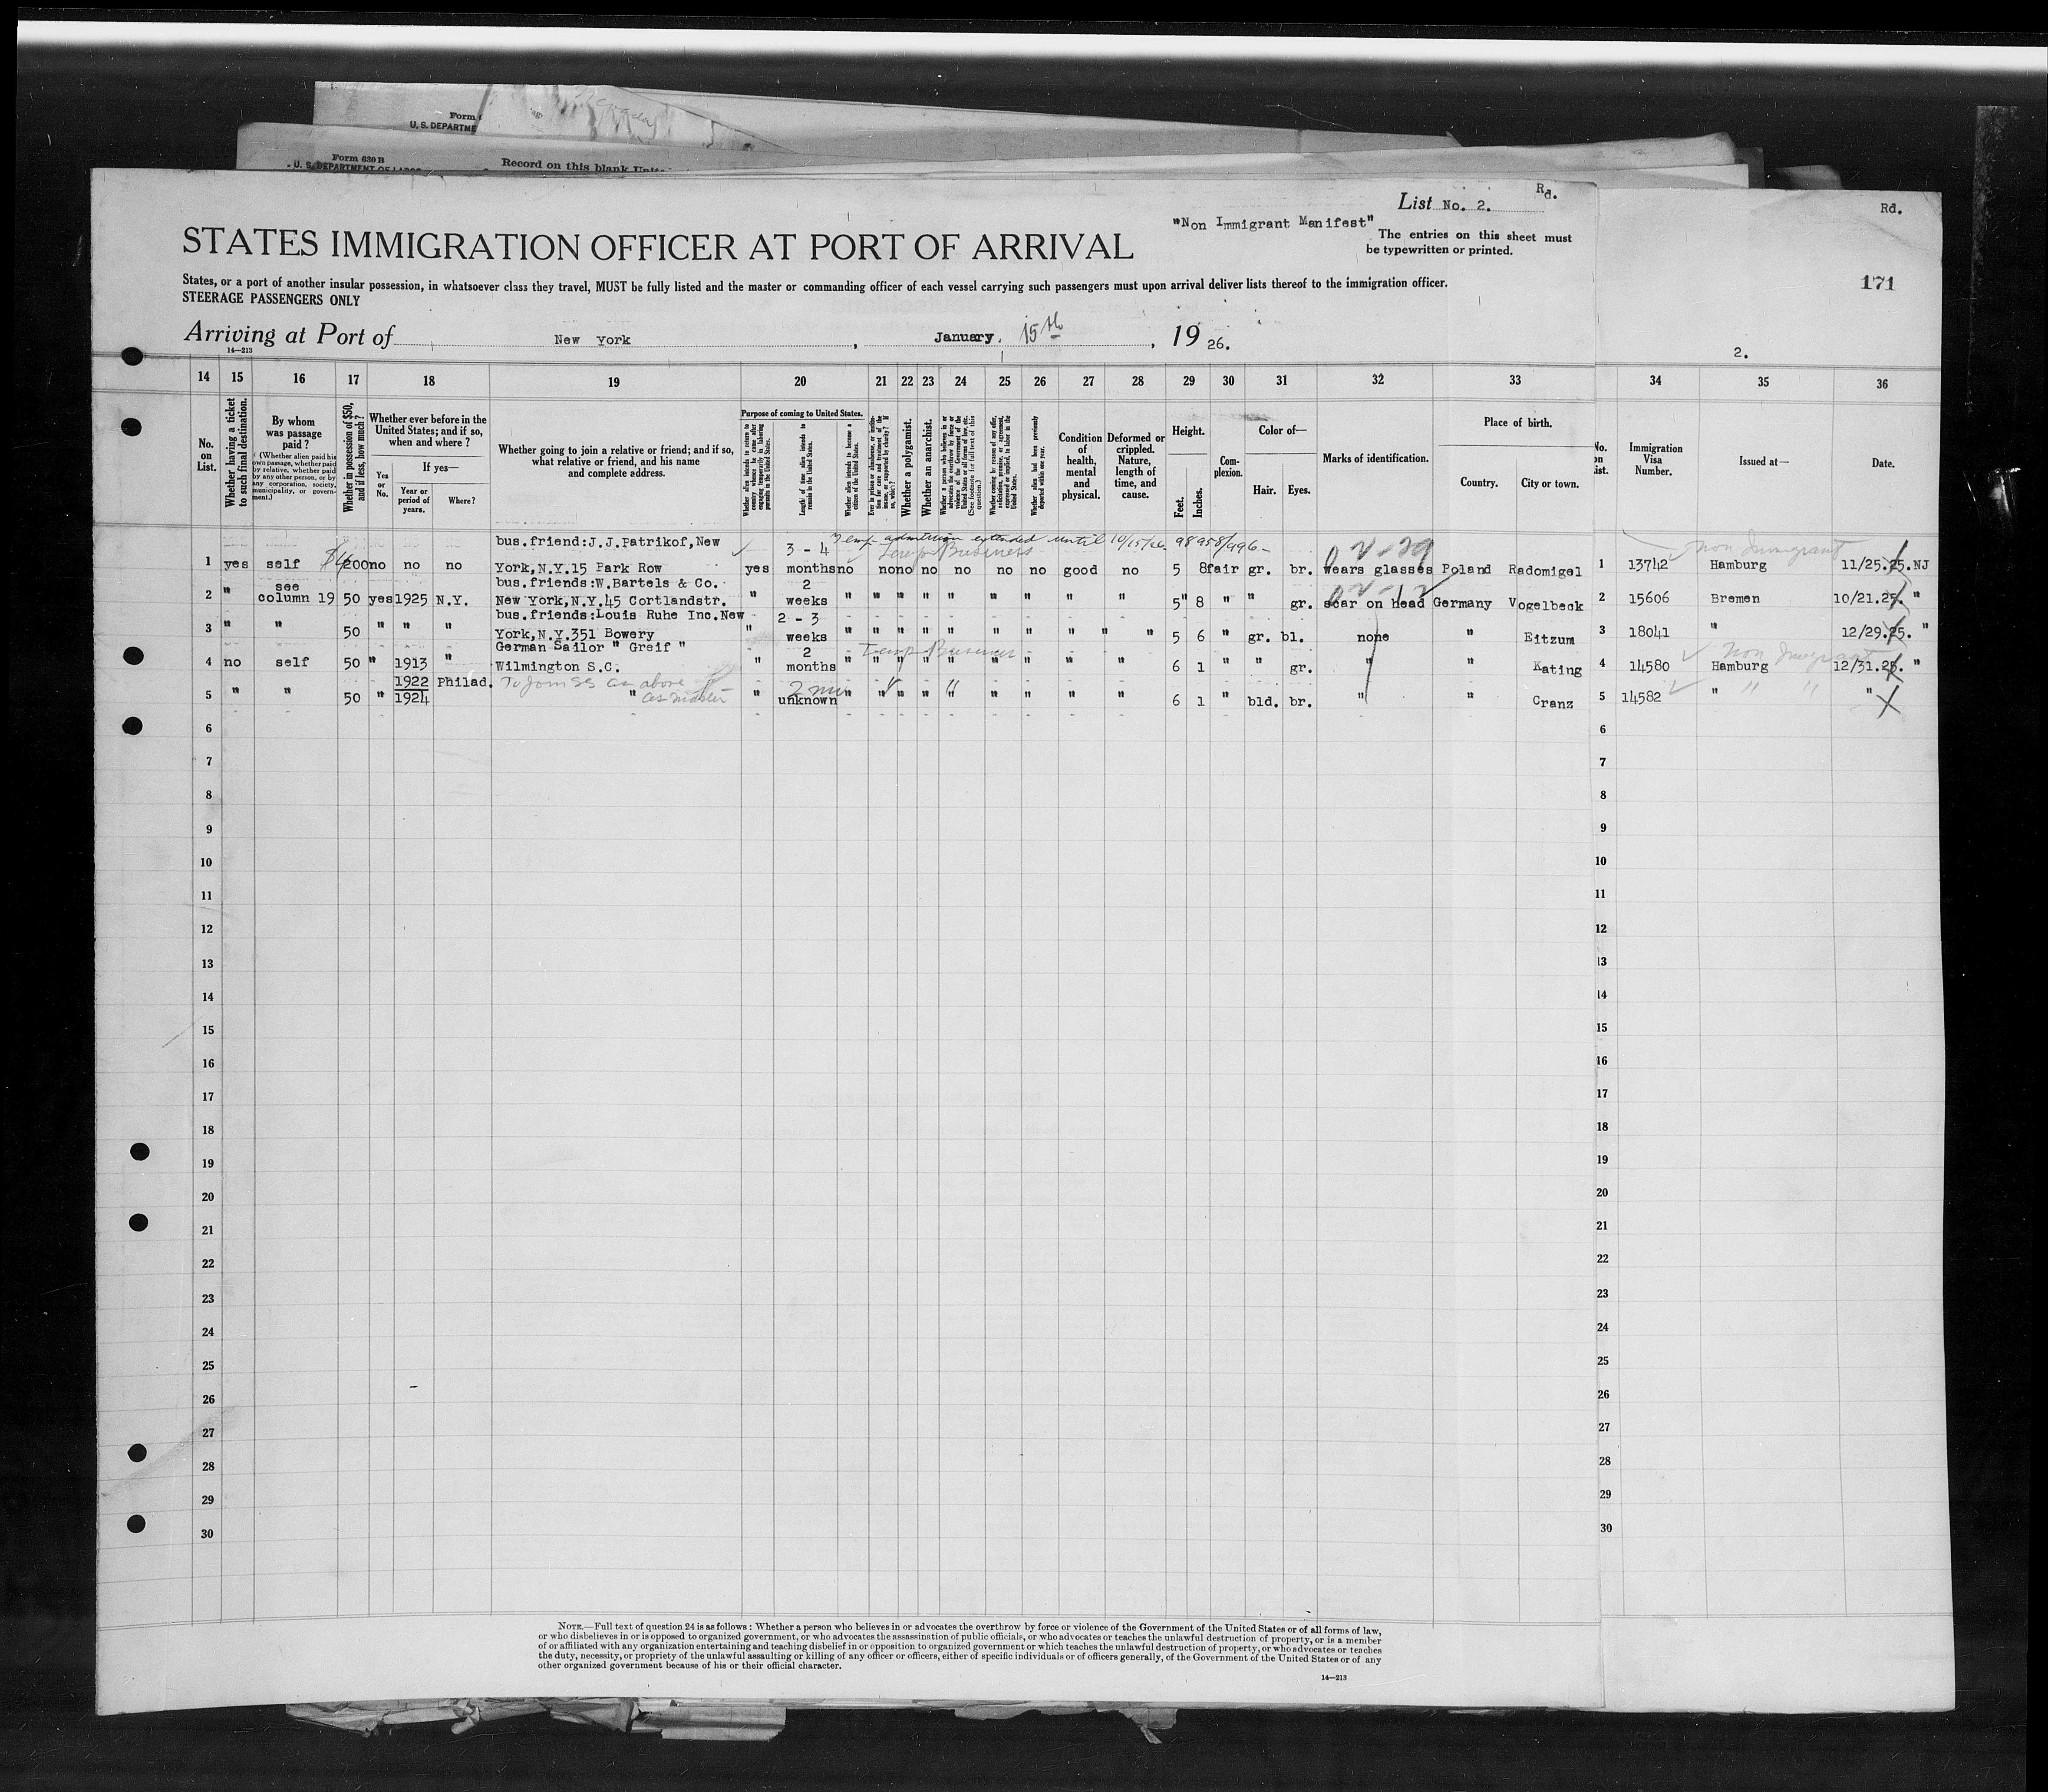 Form
U. S. DEPARTME
Form 630 B
U. S. DEPARTMENT OF LABOR
Record on this blank Unite
List No. 2.
Rd.
Rd.
"Non Immigrant Manifest"
The entries on this sheet must
be typewritten or printed.
STATES IMMIGRATION OFFICER AT PORT OF ARRIVAL
171
States, or a port of another insular possession, in whatsoever class they travel, MUST be fully listed and the master or commanding officer of each vessel carrying such passengers must upon arrival deliver lists thereof to the immigration officer.
STEERAGE PASSENGERS ONLY
Arriving at Port of New York, January, 15th, 19 26.
14—213
2.
14 15 16 17 18 19 20 21 22 23 24 25 26 27 28 29 30 31 32 33 34 35 36
No. on List.
Whether having a ticket to such final destination.
By whom was passage paid?
(Whether alien paid his own passage, whether paid by relative, whether paid by any other person, or by any corporation, society, municipality, or government.)
Whether in possession of $50, and if less, how much?
Whether ever before in the United States; and if so, when and where?
Yes or No.
If yes—
Year or period of years.
Where?
Whether going to join a relative or friend; and if so, what relative or friend, and his name and complete address.
Purpose of coming to United States.
Whether alien intends to return to country whence he came after engaging temporarily in laboring pursuits in the United States.
Length of time alien intends to remain in the United States.
Whether alien intends to become a citizen of the United States.
Ever in prison or almshouse, or institution for care and treatment of the insane, or supported by charity? If so, which?
Whether a polygamist.
Whether an anarchist.
Whether a person who believes in or advocates the overthrow by force or violence of the Government of the United States or all forms of law, etc. (See footnote for full text of this question.)
Whether coming by reason of any offer, solicitation, promise, or agreement, expressed or implied, to labor in the United States.
Whether alien had been previously deported within one year.
Condition of health, mental and physical.
Deformed or crippled. Nature, length of time, and cause.
Height.
Feet. Inches.
Complexion.
Color of—
Hair. Eyes.
Marks of identification.
Place of birth.
Country. City or town.
No. on List.
Immigration Visa Number.
Issued at—
Date.
Temp admission extended until 10/15/26 98958/996-
bus.friend:J.J.Patrikof,New 3 - 4 Non Immigrant
1 yes self 200 no no no York,N.Y.15 Park Row yes months no no no no no no no good no 5 8 fair gr. br. wears glasses Poland Radomigel 1 13742 Hamburg 11/25.25. NJ
see bus.friends:W.Bartels & Co. 2
2 " column 19 50 yes 1925 N.Y. New York,N.Y.45 Cortlandstr. " weeks " " " " " " " " " 5" 8 " " gr. scar on head Germany Vogelbeck 2 15606 Bremen 10/21.25. "
bus.friends:Louis Ruhe Inc.New 2 - 3
3 " " 50 " " " York,N.Y.351 Bowery " weeks " " " " " " " " " " 5 6 " gr. bl. none " Eitzum 3 18041 " 12/29.25. "
German Sailor " Greif " 2 Temp Business Non Immigrant
4 no self 50 " 1913 " Wilmington S.C. " months " " " " " " " " " 6 1 " " gr. " " Kating 4 14580 Hamburg 12/31.25. "
1922 Philad. To join SS as above 2
5 " " 50 " 1924 " as master " unknown " " " " " " " " " 6 1 " bld. br. " " Cranz 5 14582 " " " "
6 6
7 7
8 8
9 9
10 10
11 11
12 12
13 13
14 14
15 15
16 16
17 17
18 18
19 19
20 20
21 21
22 22
23 23
24 24
25 25
26 26
27 27
28 28
29 29
30 30
NOTE.—Full text of question 24 is as follows: Whether a person who believes in or advocates the overthrow by force or violence of the Government of the United States or of all forms of law,
or who disbelieves in or is opposed to organized government, or who advocates the assassination of public officials, or who advocates or teaches the unlawful destruction of property, or is a member
of or affiliated with any organization entertaining and teaching disbelief in or opposition to organized government or which teaches the unlawful destruction of property, or who advocates or teaches
the duty, necessity, or propriety of the unlawful assaulting or killing of any officer or officers, either of specific individuals or of officers generally, of the Government of the United States or of any
other organized government because of his or their official character.
14—213